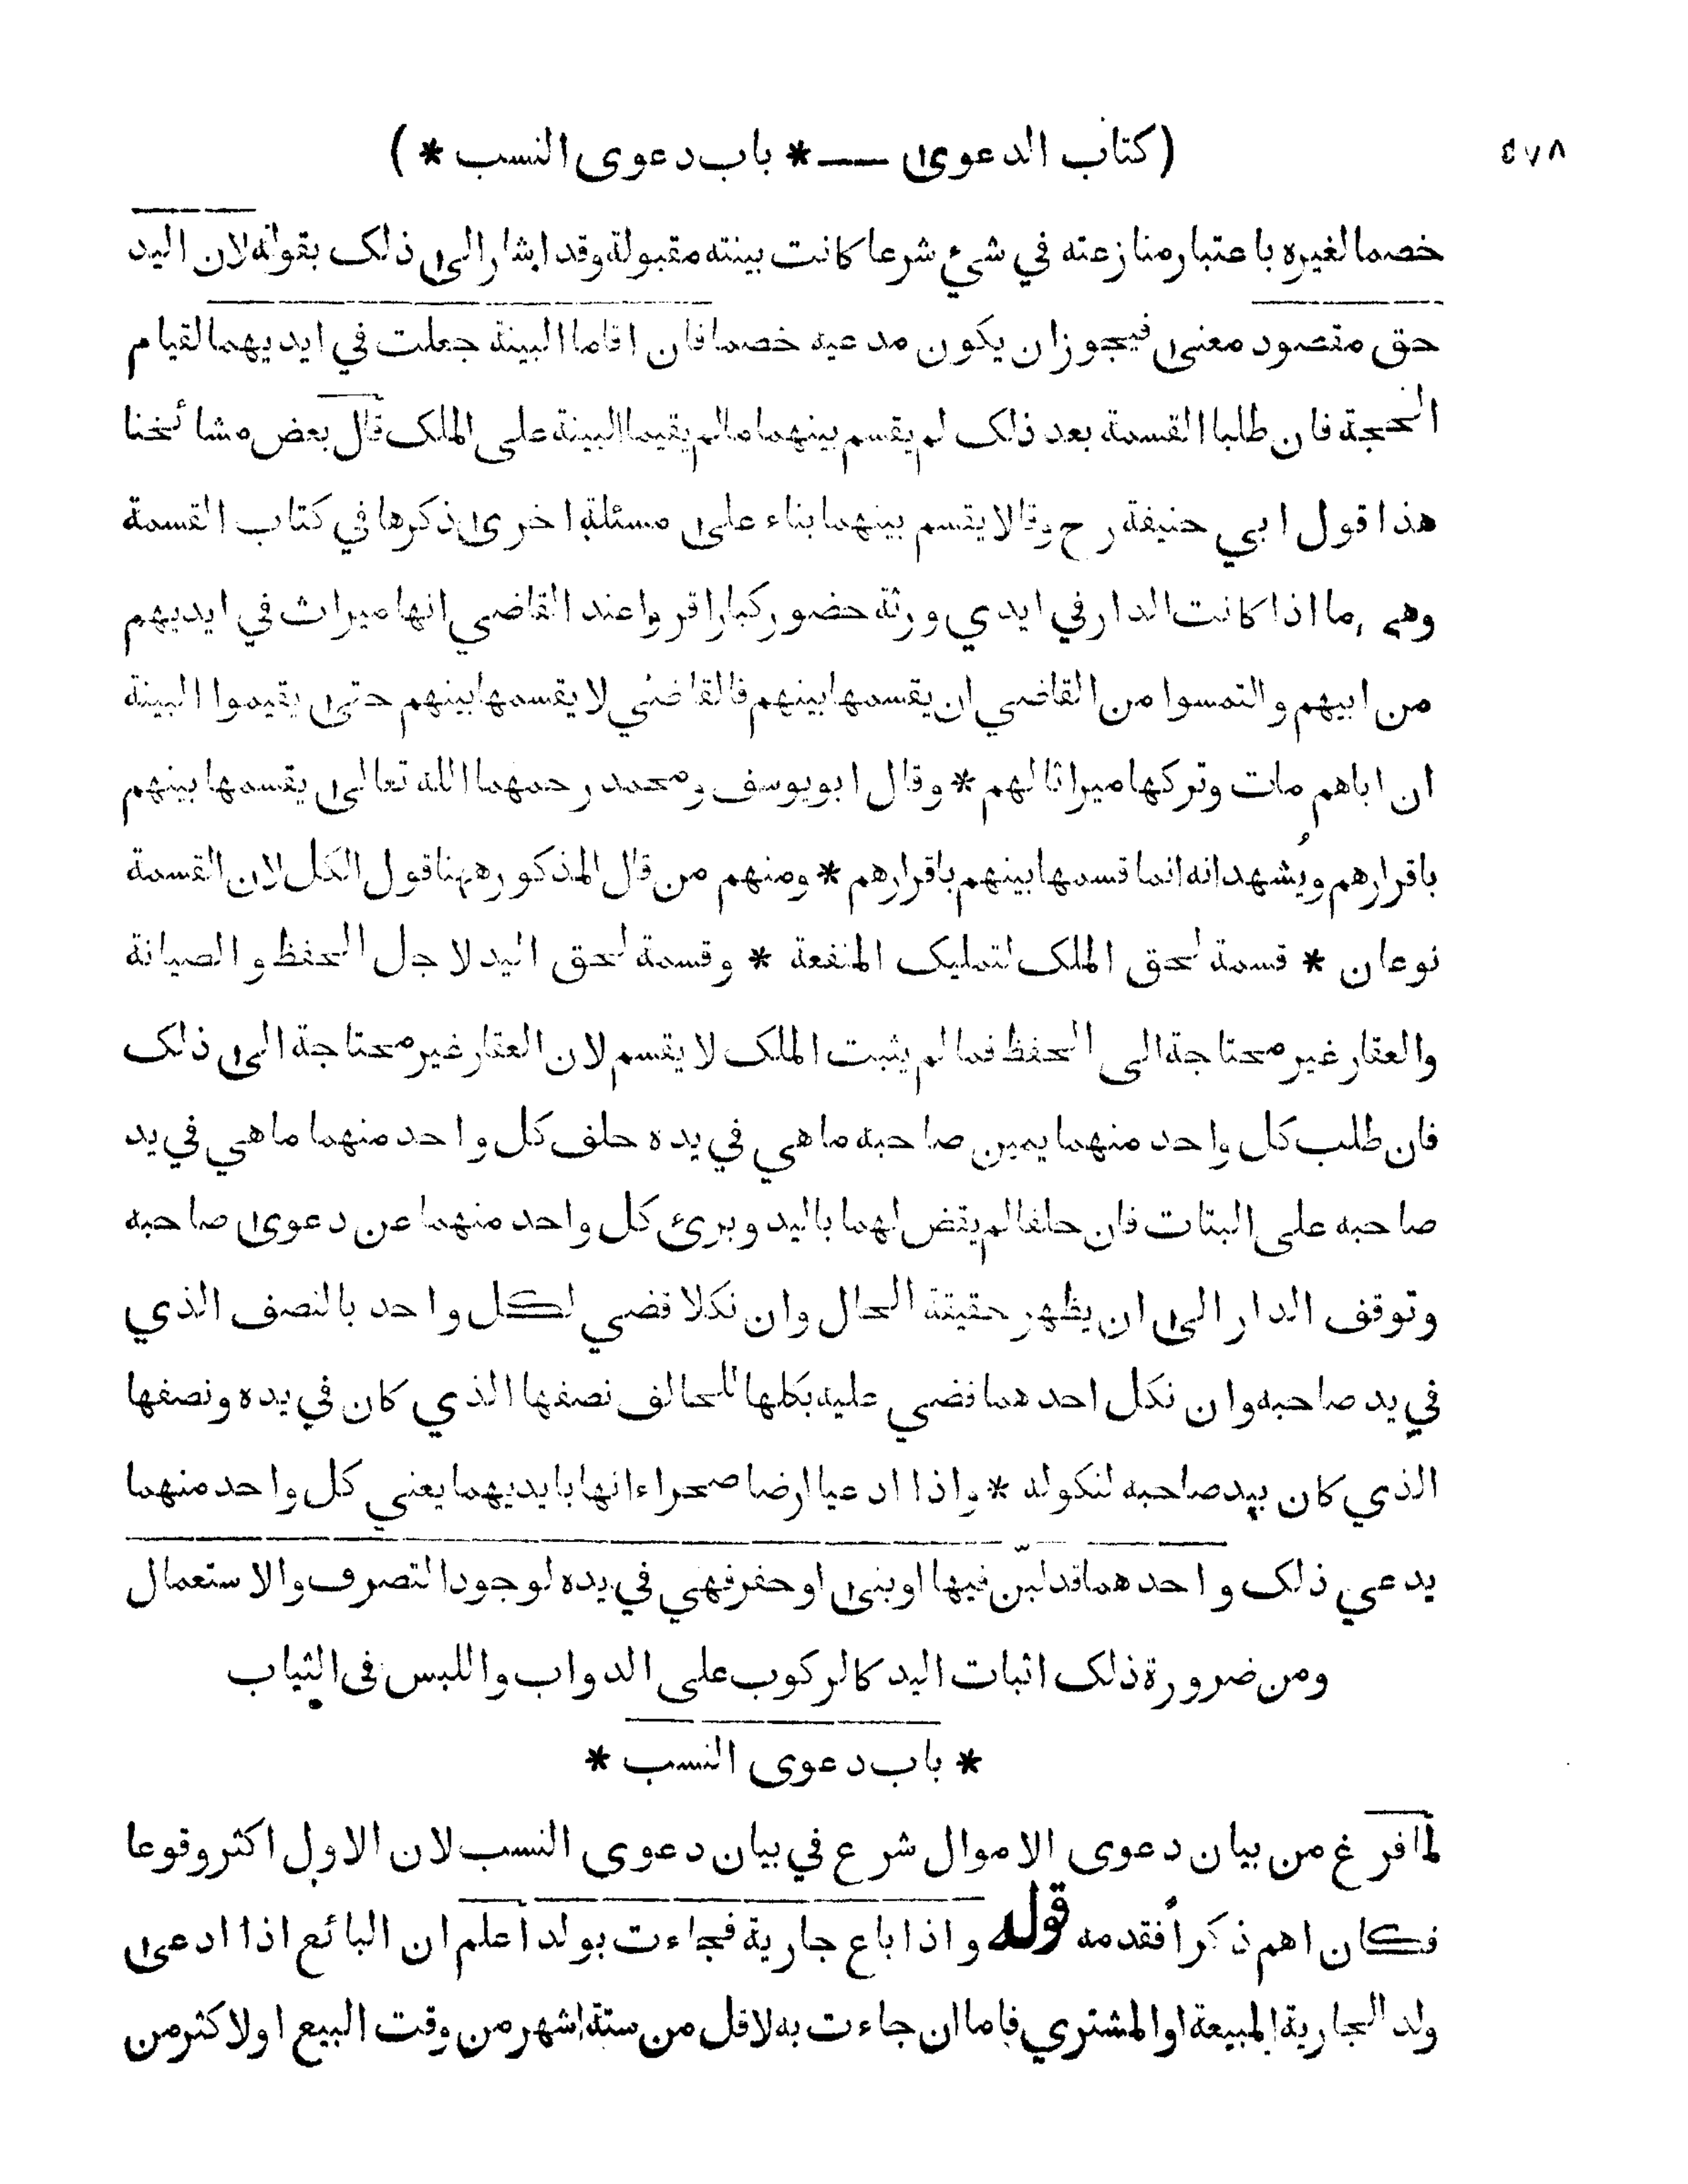 ٤٧٨
(كتاب الدعوى — * باب دعوى النسب *)
خصما لغيره باعتبار منازعته في شيء شرعا كانت بينته مقبولة وقد اشار الى ذلك بقوله لان اليد
حق مقصود معنى فيجوز ان يكون مدعيه خصما فان اقاما البينة جعلت في ايديهما لقيام
الحجة فان طلبا القسمة بعد ذلك لم يقسم بينهما مالم يقيما البينة على الملك قال بعض مشائخنا
هذا قول ابي حنيفة رح وقالا يقسم بينهما بناء على مسئلة اخرى ذكرها في كتاب القسمة
وهي ما اذا كانت الدار في ايدي ورثة حضور كبار اقروا عند القاضي انها ميراث في ايديهم
من ابيهم والتمسوا من القاضي ان يقسمها بينهم فالقاضي لا يقسمها بينهم حتى يقيموا البينة
ان اباهم مات وتركها ميراثا لهم * وقال ابو يوسف ومحمد رحمهما الله تعالى يقسمها بينهم
باقرارهم ويُشهد انه انما قسمها بينهم باقرارهم * ومنهم من قال المذكور ههنا قول الكل لان القسمة
نوعان * قسمة لحق الملك لتمليك المنفعة * وقسمة لحق اليد لاجل الحفظ والصيانة
والعقار غير محتاجة الى الحفظ فما لم يثبت الملك لا يقسم لان العقار غير محتاجة الى ذلك
فان طلب كل واحد منهما يمين صاحبه ما هي في يده حلف كل واحد منهما ما هي في يد
صاحبه على البتات فان حلفا لم يقض لهما باليد وبرئ كل واحد منهما عن دعوى صاحبه
وتوقف الدار الى ان يظهر حقيقة الحال وان نكلا قضي لكل واحد بالنصف الذي
في يد صاحبه وان نكل احدهما قضي عليه بكلها للحالف نصفها الذي كان في يده ونصفها
الذي كان بيد صاحبه لنكوله * واذا ادعيا ارضا صحراء انها بايديهما يعني كل واحد منهما
يدعي ذلك واحدهما قد لبّن فيها او بنى او حفر فهي في يده لوجود التصرف والاستعمال
ومن ضرورة ذلك اثبات اليد كالركوب على الدواب واللبس فى الثياب
* باب دعوى النسب *
لما فرغ من بيان دعوى الاموال شرع في بيان دعوى النسب لان الاول اكثر وقوعا
فكان اهم ذكرا فقدمه قوله واذا باع جارية فجاءت بولد اعلم ان البائع اذا ادعى
ولد الجارية المبيعة او المشتري فاما ان جاءت به لاقل من ستة اشهر من وقت البيع او لاكثر من